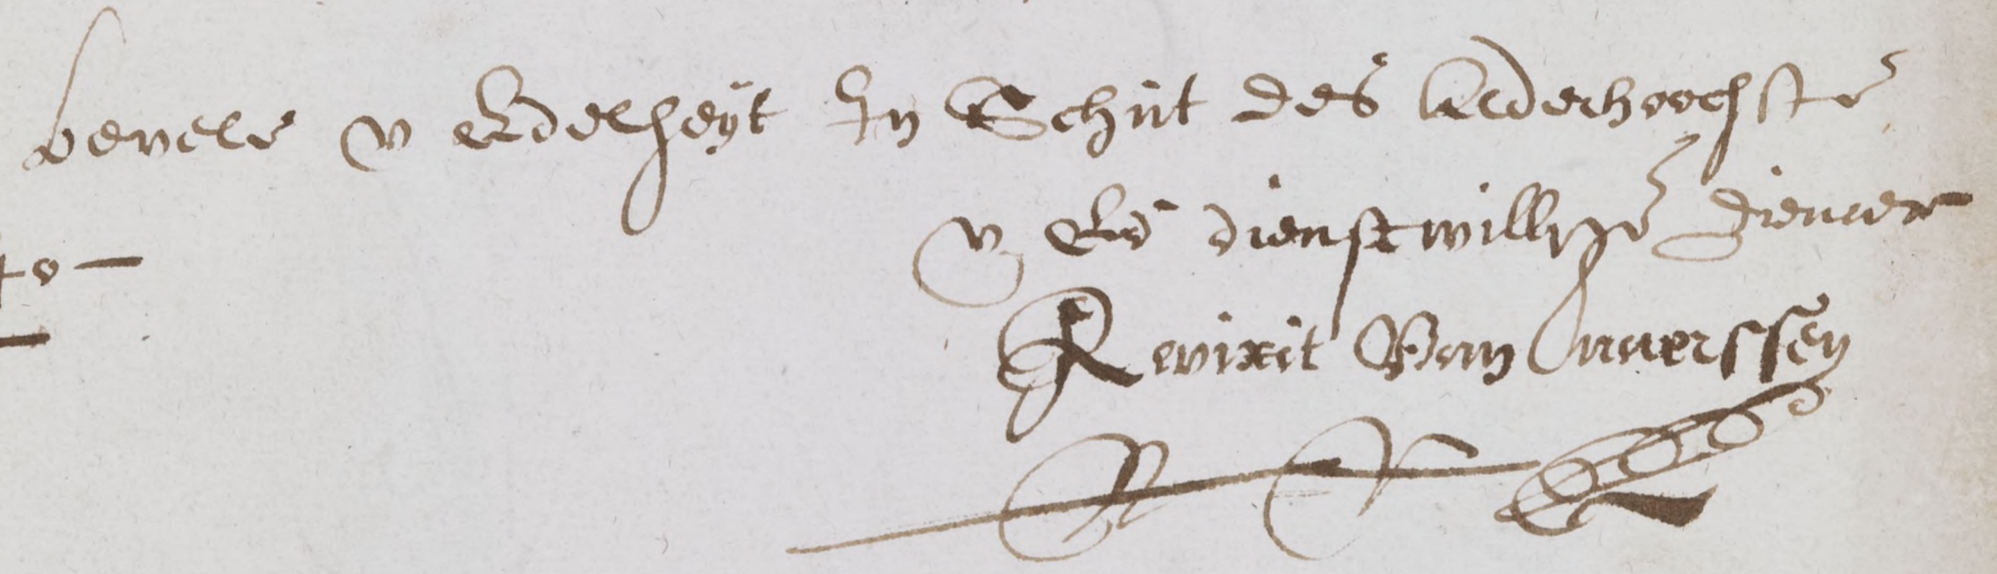 bevele v Edelheyt In Schut des Alderhoochste
v Ed dienstwillige diener
to
Revixit Van Naerssen